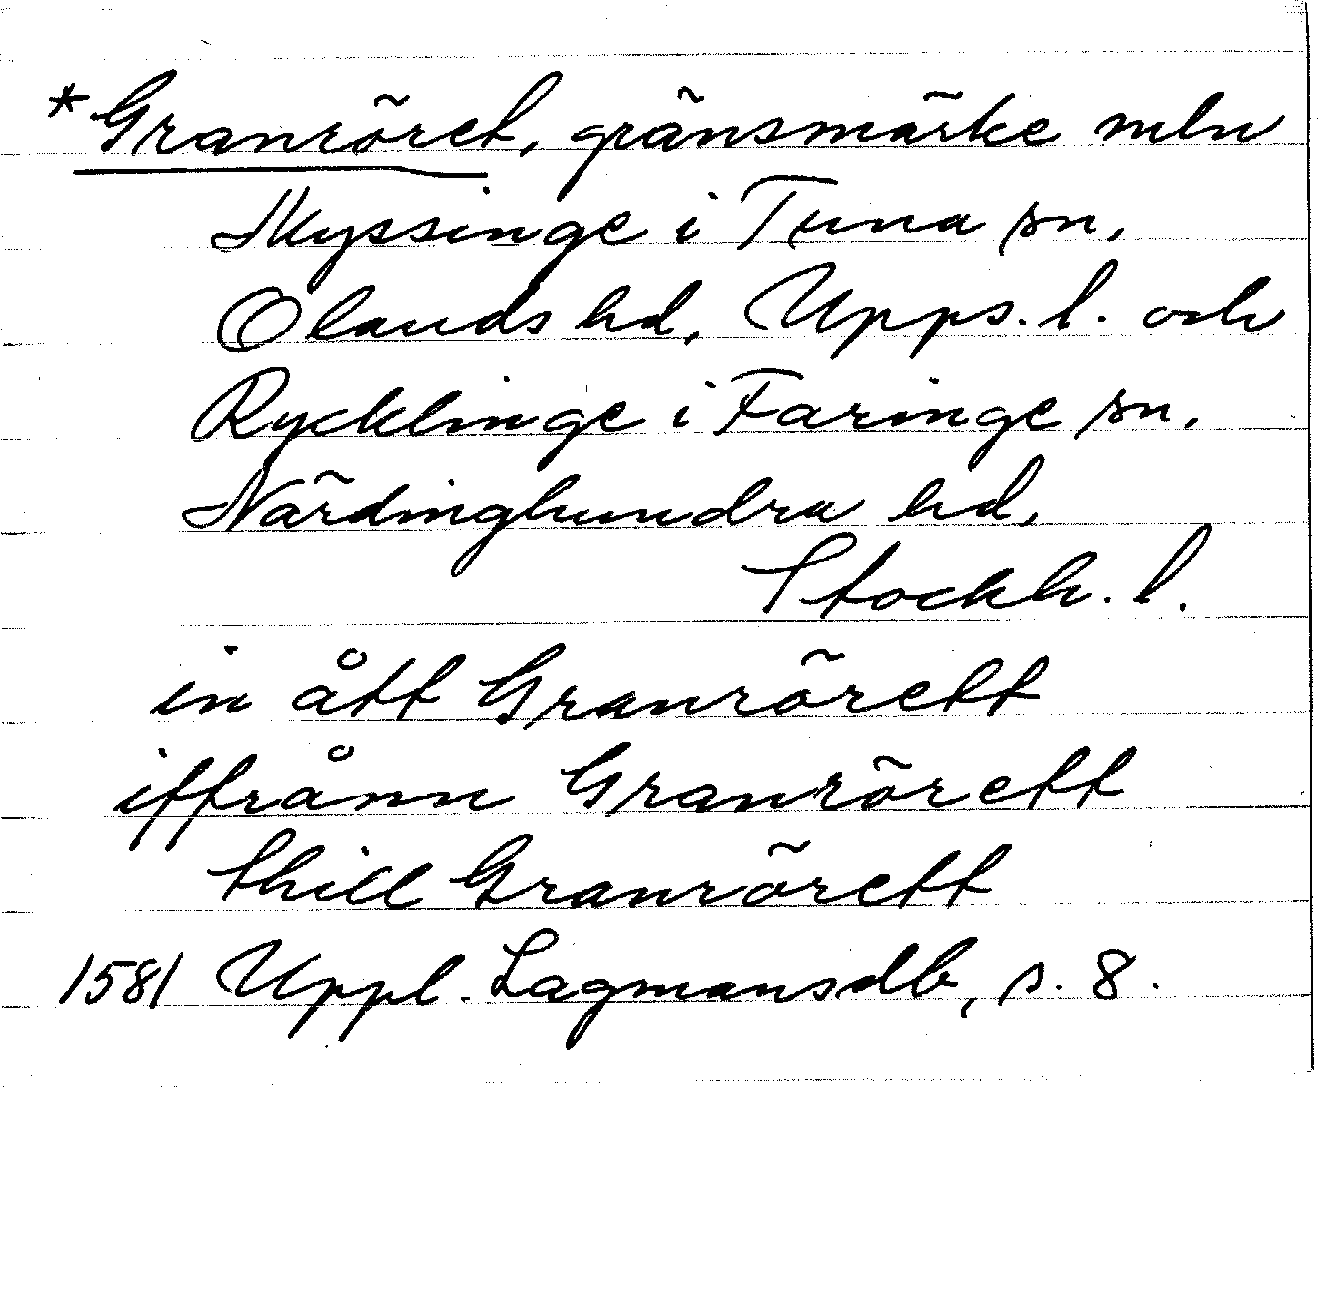 *Granröret, gränsmärke mln
Myssinge i Tuna sn,
Olands hd, Upps. l. och
Rycklinge i Faringe sn,
Närdinghundra hd,
Stockh. l.
inått Granrörett
iffrånn Granrörett
thill Granrörett
1581 Uppl. Lagmansdb, s. 8.